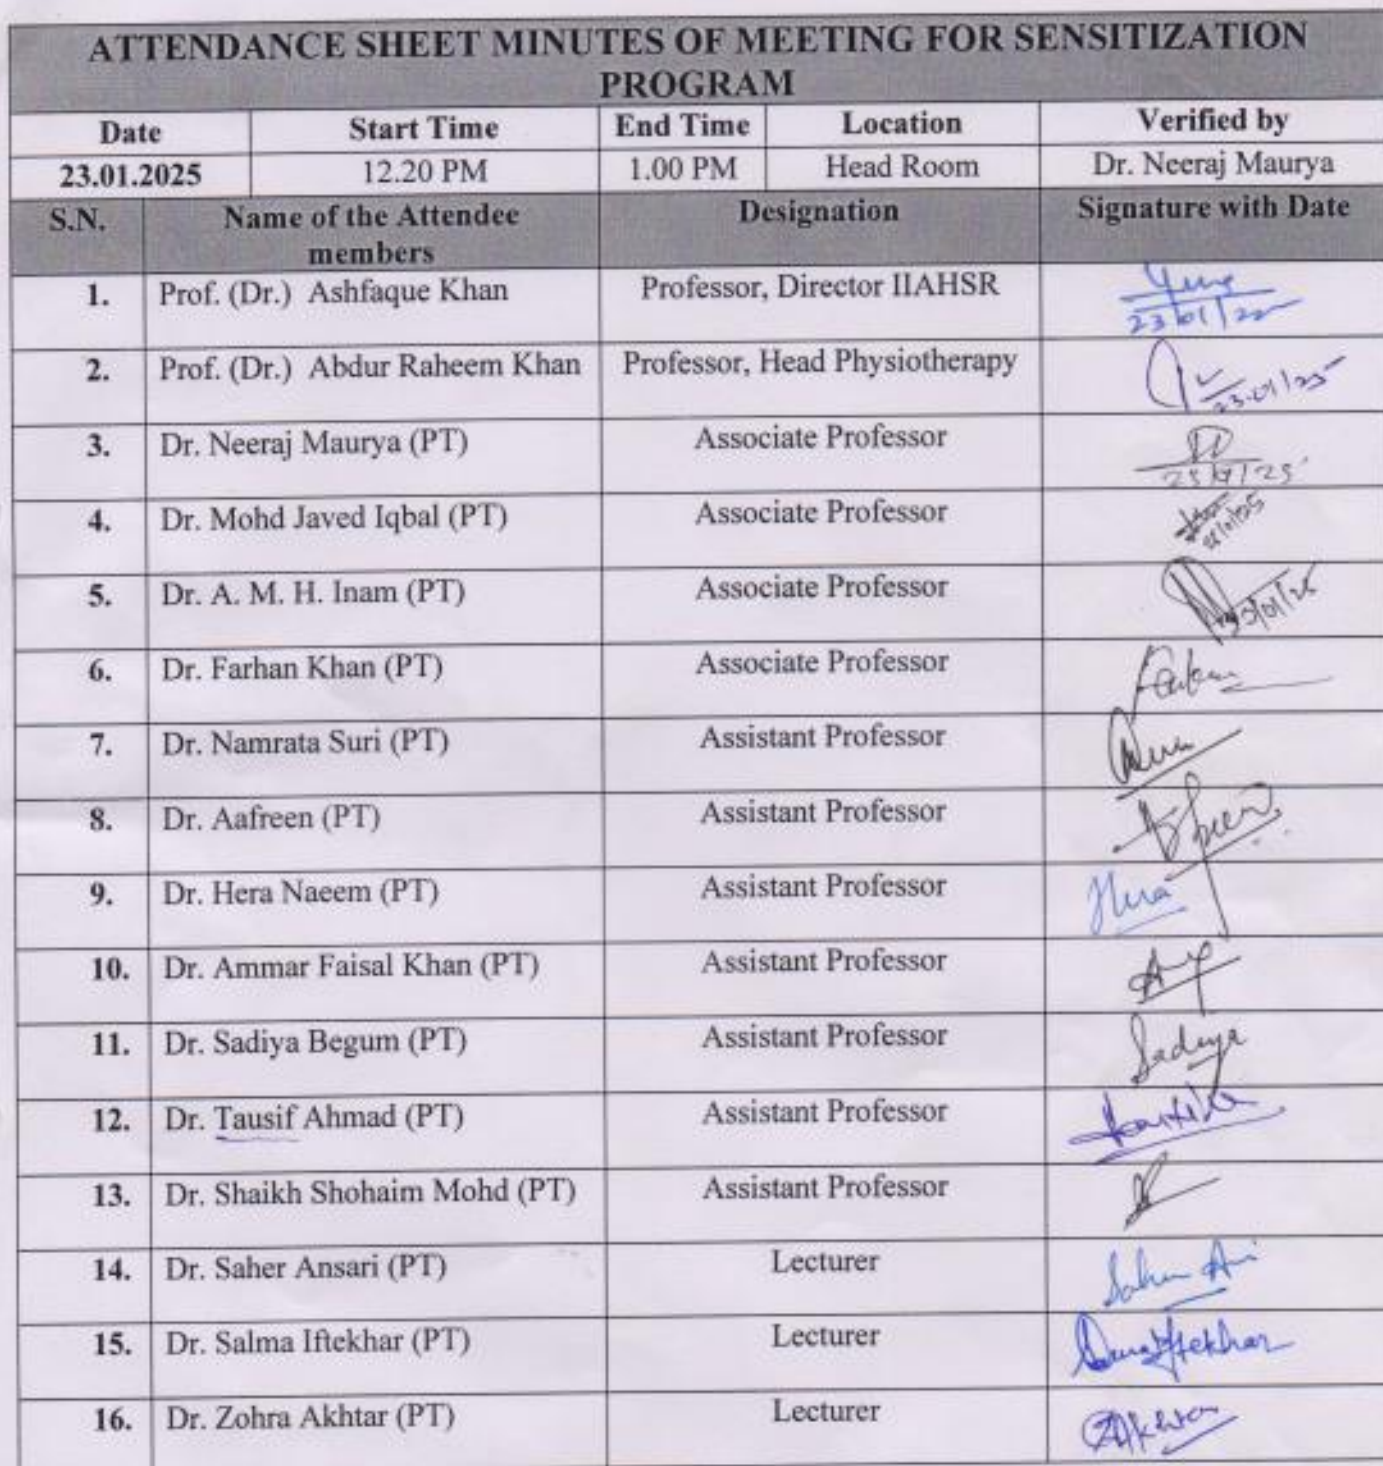 ATTENDANCE SHEET MINUTES OF MEETING FOR SENSITIZATION
PROGRAM
Date Start Time End Time Location Verified by
23.01.2025 12.20 PM 1.00 PM Head Room Dr. Neeraj Maurya
S.N. Name of the Attendee members Designation Signature with Date
1. Prof. (Dr.) Ashfaque Khan Professor, Director IIAHSR
2. Prof. (Dr.) Abdur Raheem Khan Professor, Head Physiotherapy 23.01/25
3. Dr. Neeraj Maurya (PT) Associate Professor
4. Dr. Mohd Javed Iqbal (PT) Associate Professor
5. Dr. A. M. H. Inam (PT) Associate Professor
6. Dr. Farhan Khan (PT) Associate Professor
7. Dr. Namrata Suri (PT) Assistant Professor
8. Dr. Aafreen (PT) Assistant Professor
9. Dr. Hera Naeem (PT) Assistant Professor Hera
10. Dr. Ammar Faisal Khan (PT) Assistant Professor
11. Dr. Sadiya Begum (PT) Assistant Professor Sadiya
12. Dr. Tausif Ahmad (PT) Assistant Professor
13. Dr. Shaikh Shohaim Mohd (PT) Assistant Professor
14. Dr. Saher Ansari (PT) Lecturer
15. Dr. Salma Iftekhar (PT) Lecturer Iftekhar
16. Dr. Zohra Akhtar (PT) Lecturer